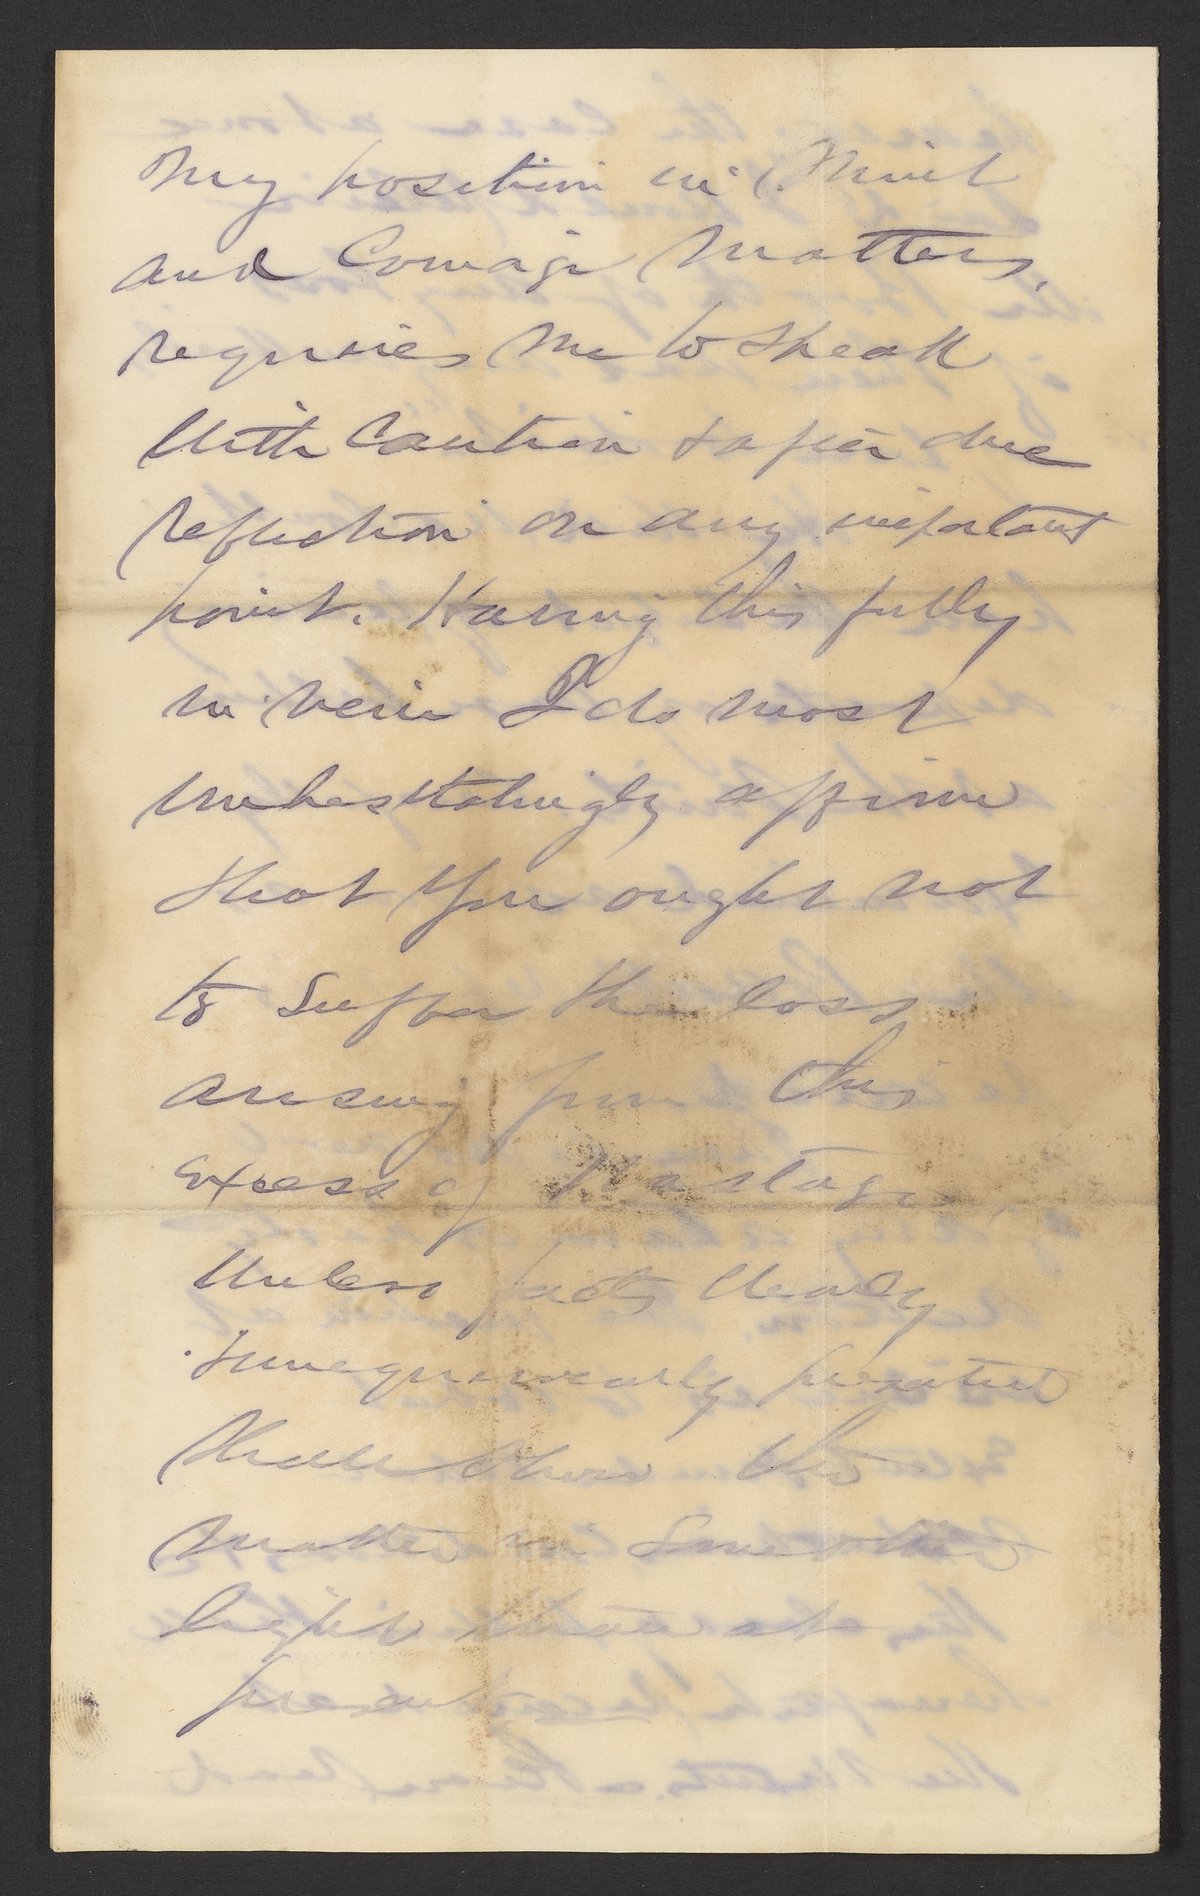 My position in Mint
and Coinage Matters,
requires me to speak
With Caution & after due
reflection on any important
point. Having this fully
in view I do most
unhesitatingly affirm
that you ought not
to Suffer the loss
arising from this
excess of Wastage
Unless facts clearly
& unequivocally presented
Shall show the
matter in Some other
light than at
present